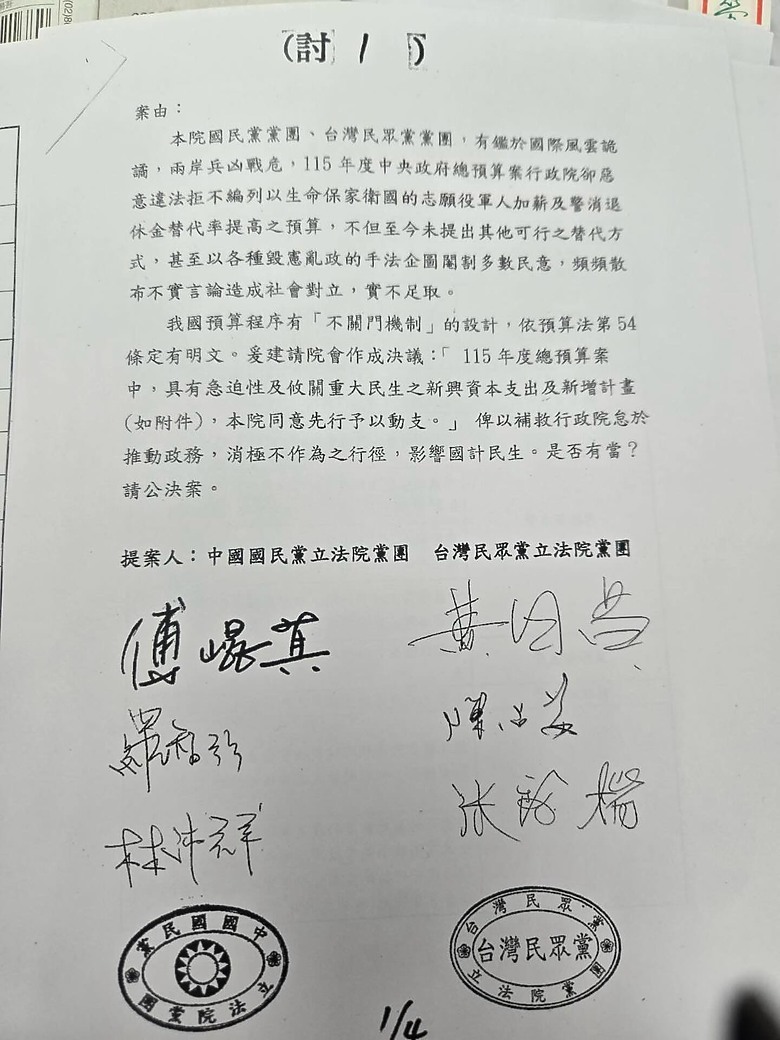 (討 1 )
案由：
本院國民黨黨團、台灣民眾黨黨團，有鑑於國際風雲詭
譎，兩岸兵凶戰危，115 年度中央政府總預算案行政院卻惡
意違法拒不編列以生命保家衛國的志願役軍人加薪及警消退
休金替代率提高之預算，不但至今未提出其他可行之替代方
式，甚至以各種毀憲亂政的手法企圖閹割多數民意，頻頻散
布不實言論造成社會對立，實不足取。
我國預算程序有「不關門機制」的設計，依預算法第 54
條定有明文。爰建請院會作成決議：「 115 年度總預算案
中，具有急迫性及攸關重大民生之新興資本支出及新增計畫
(如附件)，本院同意先行予以動支。」 俾以補救行政院怠於
推動政務，消極不作為之行徑，影響國計民生。是否有當？
請公決案。
提案人：中國國民黨立法院黨團 台灣民眾黨立法院黨團
傅崐萁 黃國昌
羅智強 陳清龍
林沛祥 張啓楷
中國國民黨 台灣民眾黨
台灣民眾黨
立法院黨團 立法院黨團
1/4